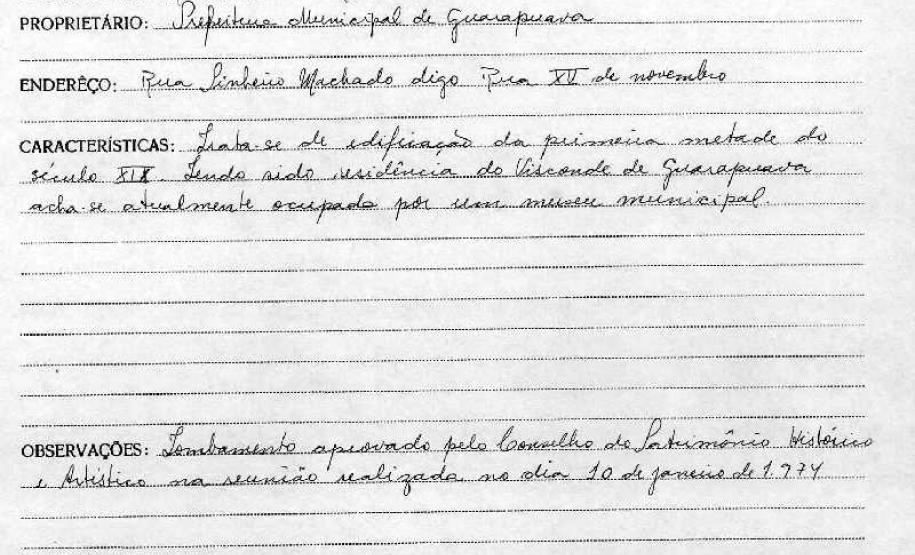 PROPRIETÁRIO: Prefeitura Municipal de Guarapuava
ENDERÊÇO: Rua Pinheiro Machado digo Rua XV de novembro
CARACTERÍSTICAS: Trata-se de edificação da primeira metade do
século XIX. Tendo sido residência do Visconde de Guarapuava
acha-se atualmente ocupada por um museu municipal.
OBSERVAÇÕES: Tombamento aprovado pelo Conselho do Patrimônio Histórico
e Artístico na reunião realizada no dia 10 de janeiro de 1.974